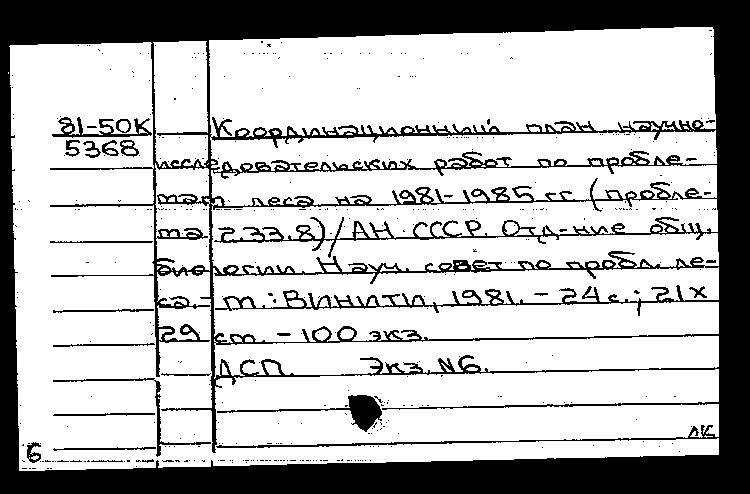 81-50К Координационный план научно-
5368 исследовательских работ по пробле-
мам леса на 1981-1985 гг (пробле-
ма 2.33.8)/АН СССР. Отд-ние общ.
биологии. Науч. совет по пробл. ле-
са.- М.: ВИНИТИ, 1981. - 24 с.; 21х
29 см. - 100 экз.
ДСП. Экз. №6.
лк
6